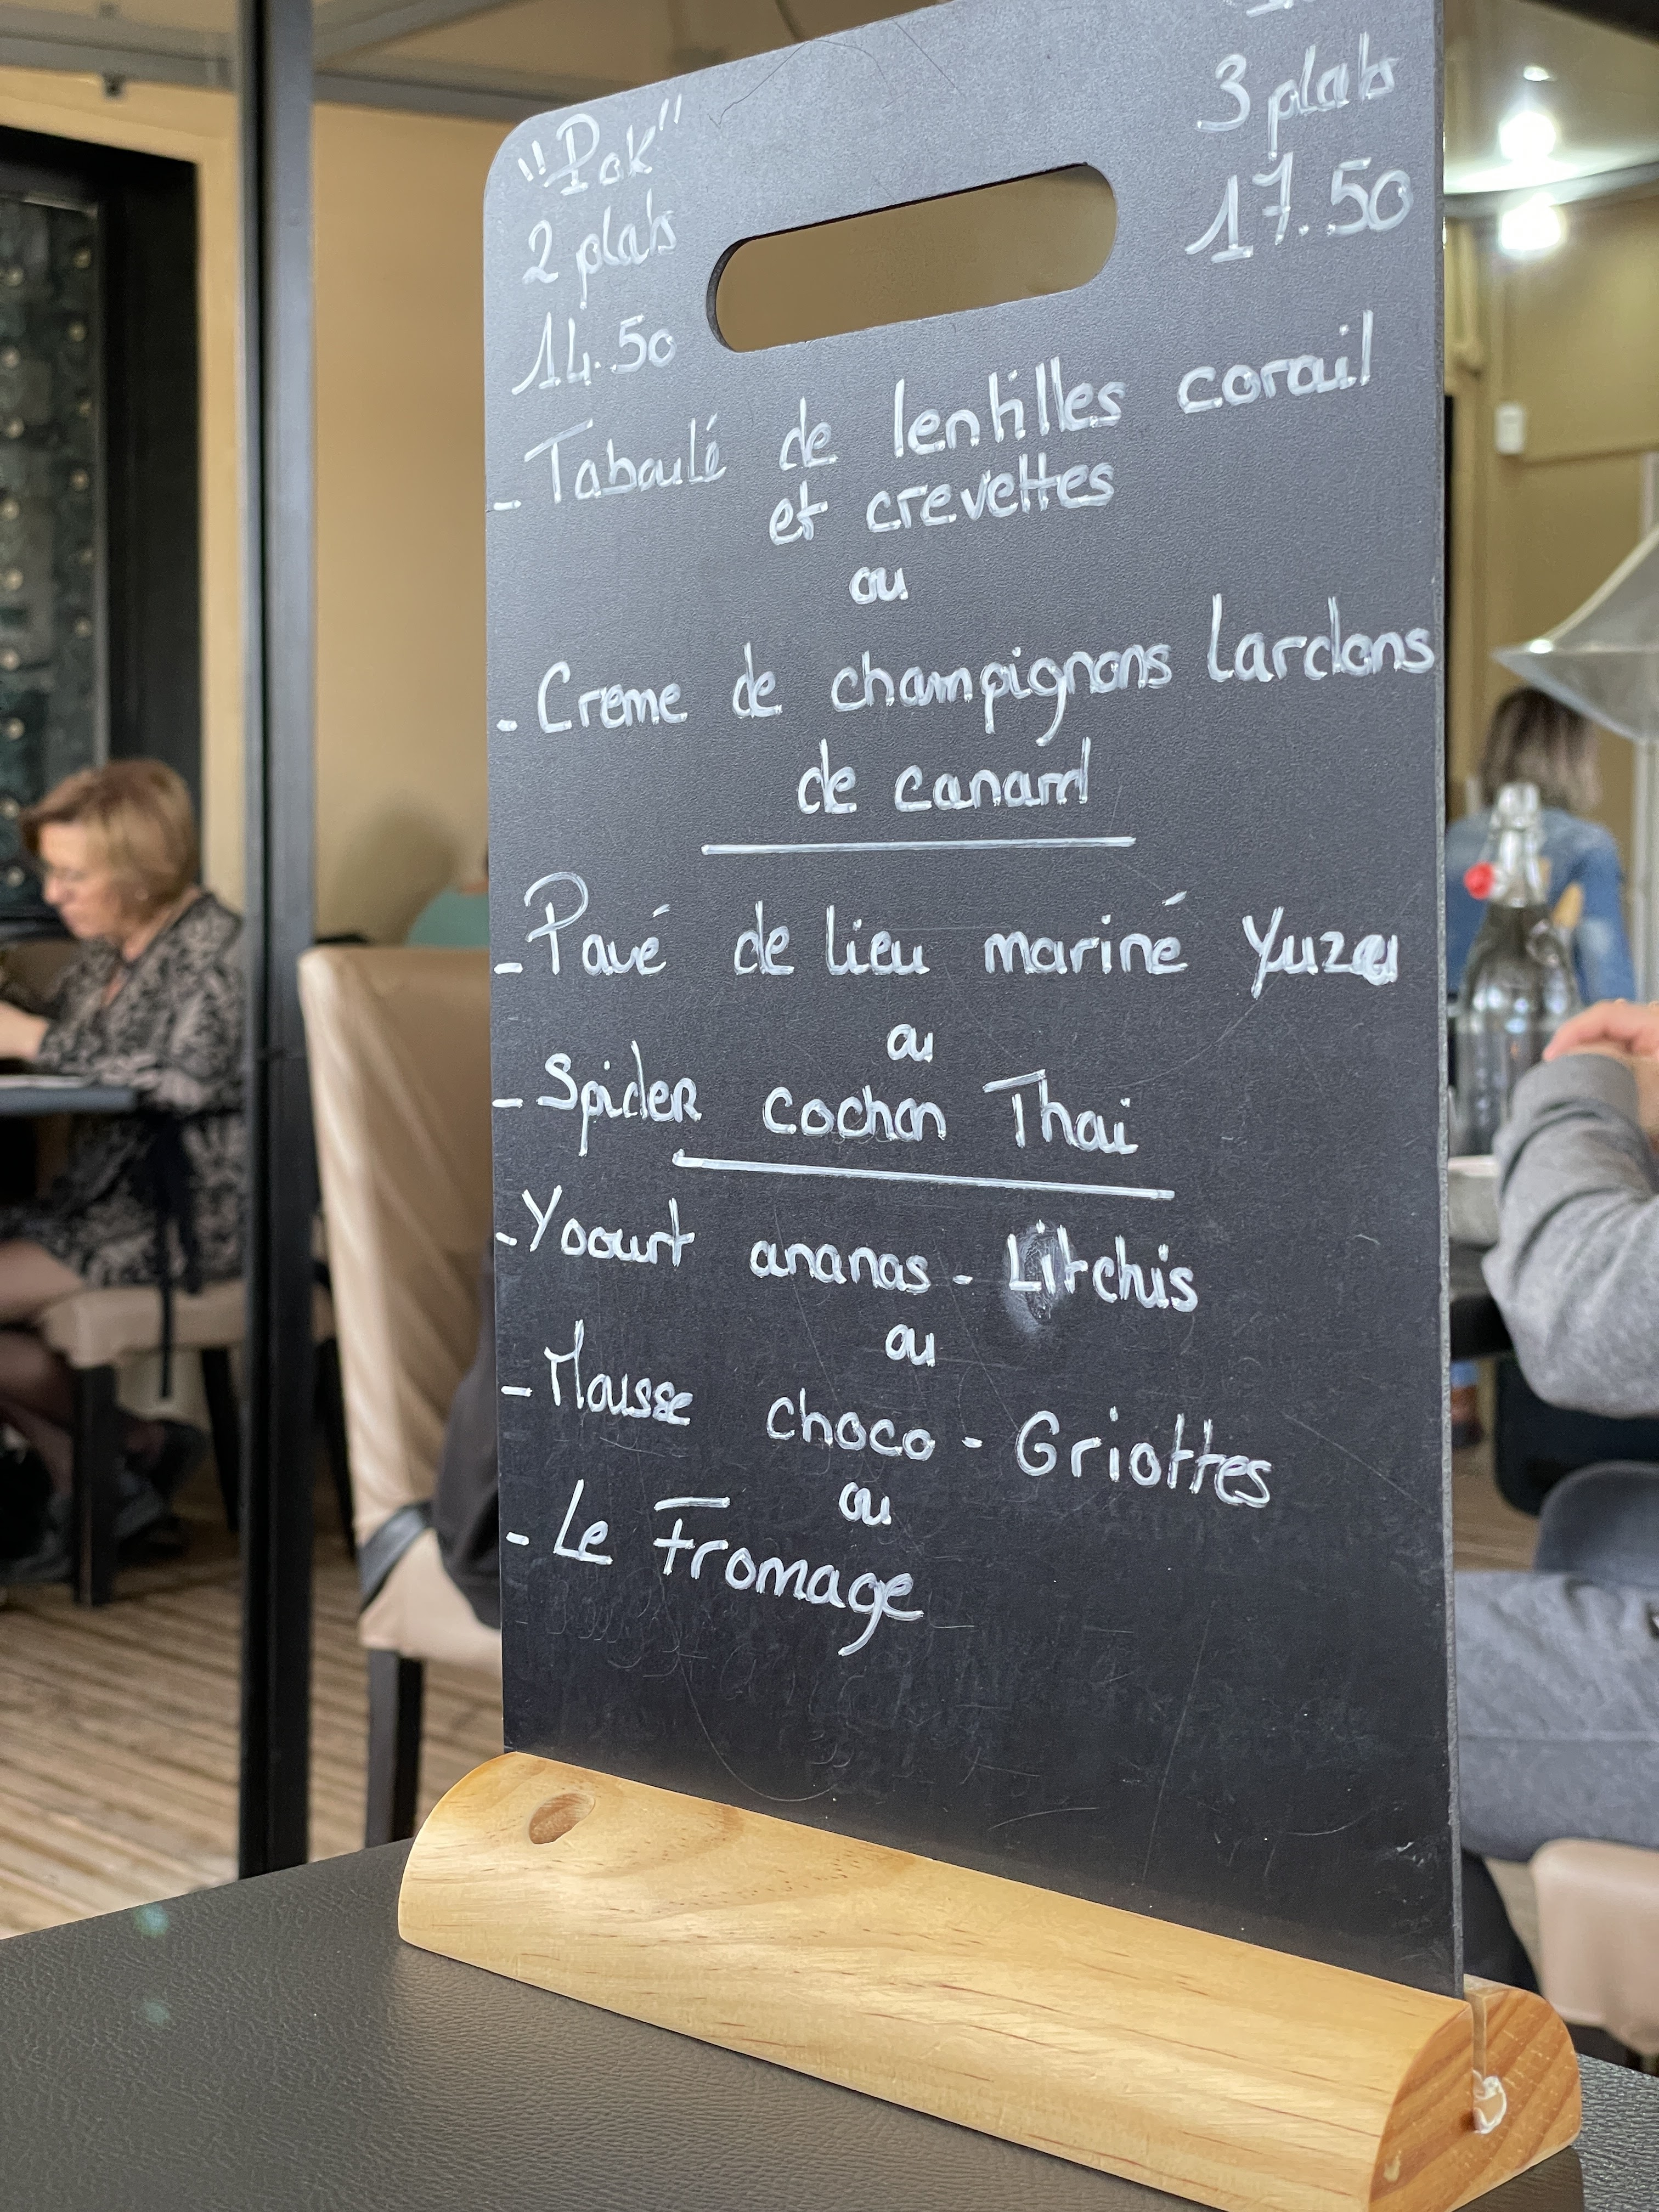 "Pok"
2 plats
14.50
3 plats
17.50
- Taboulé de lentilles corail
et crevettes
ou
- Creme de champignons lardons
de canard
- Pavé de lieu mariné Yuzu
ou
- Spider cochon Thai
- Yoourt ananas - Litchis
ou
- Mousse choco - Griottes
ou
- Le Fromage